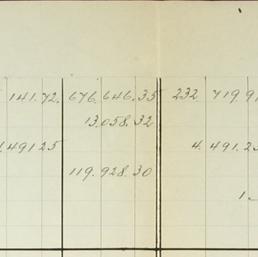 141.72. 676.646.35 232.719.9
13.058.32
.49125 4.491.25
119.928.30
1